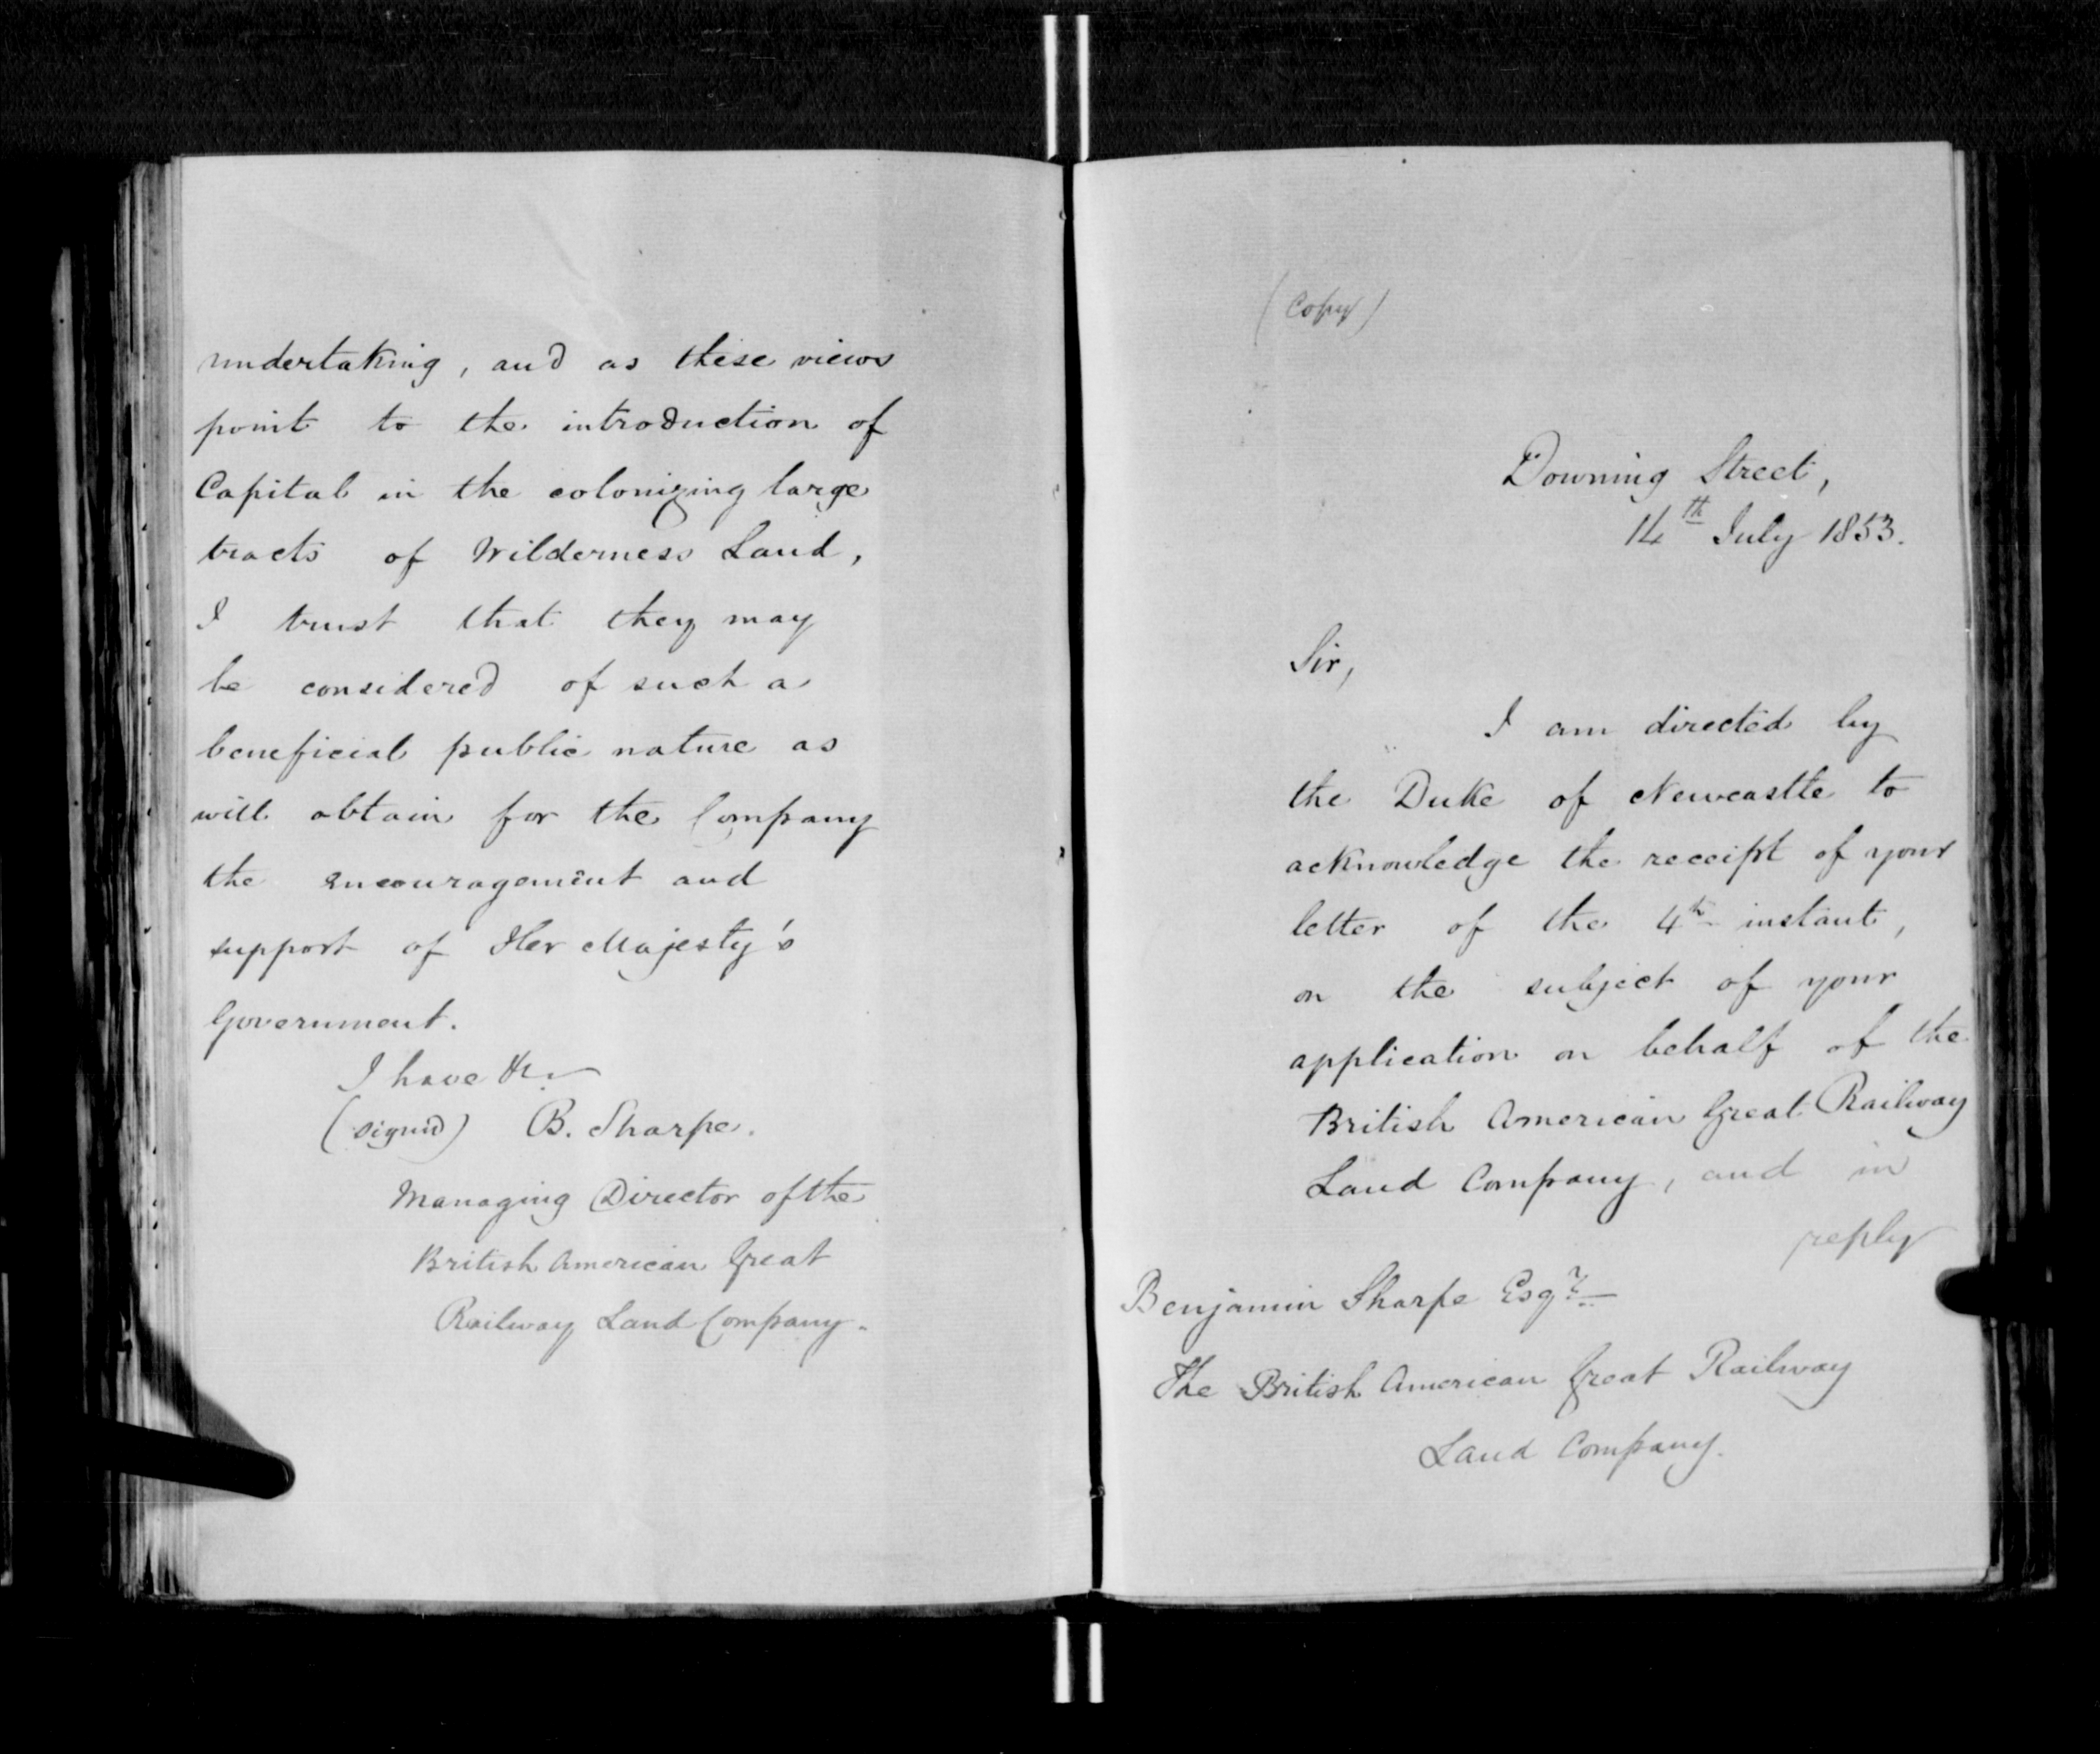 undertaking, and as these views
point to the introduction of
Capital in the colonizing large
tracts of Wilderness Land,
I trust that they may
be considered of such a
beneficial public nature as
will obtain for the Company
the encouragement and
support of Her Majesty's
Government.
I have &c.
(signed) B. Sharpe.
Managing Director of the
British American Great
Railway Land Company.
(Copy)
Downing Street,
14th July 1853.
Sir,
I am directed by
the Duke of Newcastle to
acknowledge the receipt of your
letter of the 4th instant,
on the subject of your
application on behalf of the
British American Great Railway
Land Company, and in
reply
Benjamin Sharpe Esqre
The British American Great Railway
Land Company.